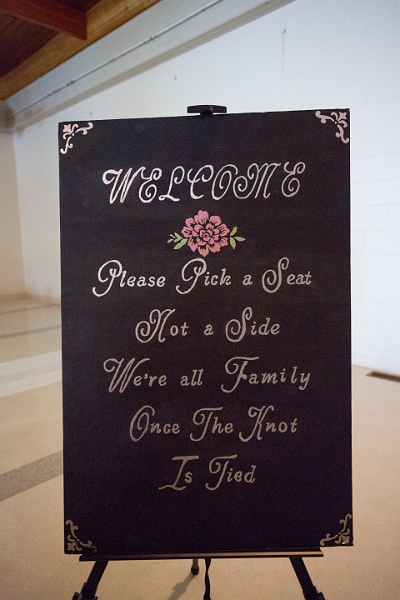 WELCOME
Please Pick a Seat
Not a Side
We're all Family
Once The Knot
Is Tied